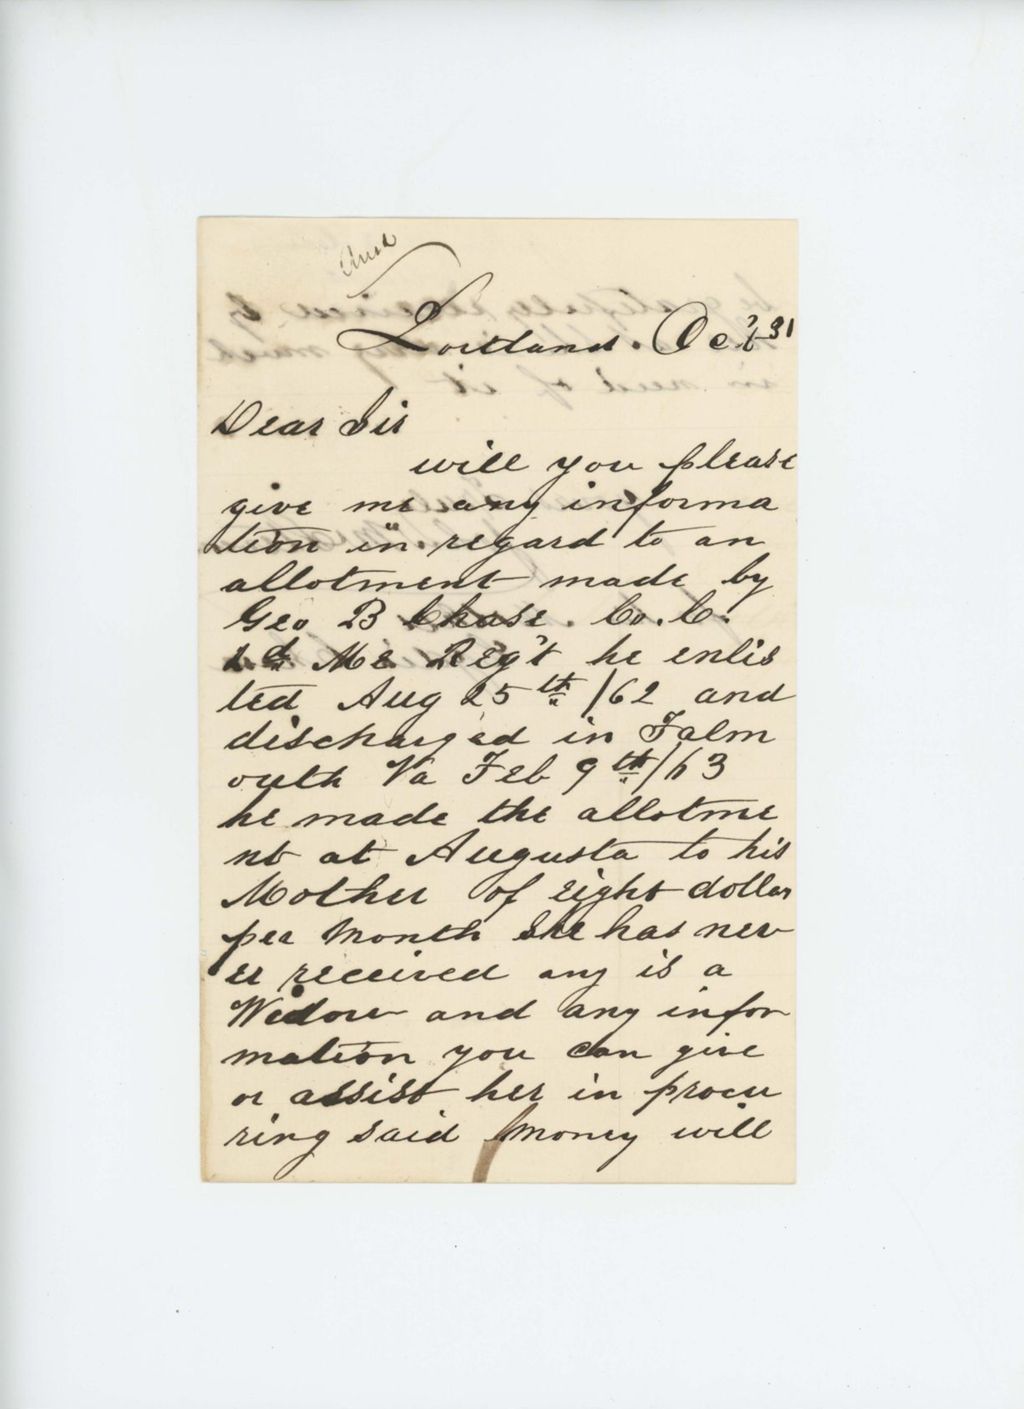 Ansd
Portland. Oct 31
Dear Sir
will you please
give me any informa
tion in regard to an
allotment made by
Geo B Chase. Co. C.
Me Reg't he enlis
ted Aug 25th /62 and
discharged in Falm
outh Va Feb 9th /63
he made the allotme
nt at Augusta to his
Mother of eight dollar
per Month She has nev
er received any is a
Widow and any infor
mation you can give
or assist her in procu
ring said money will